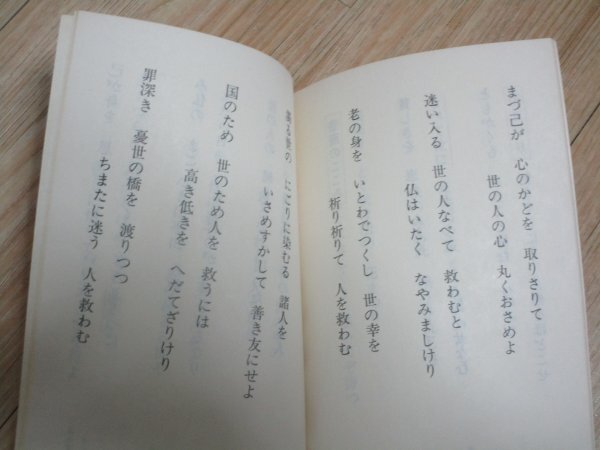 まづ己が 心のかどを 取りさりて
世の人の心 丸くおさめよ
迷い入る 世の人なべて 救わむと
仏はいたく なやみましけり
老の身を いとわでつくし 世の幸を
祈り祈りて 人を救わむ
世の にごりに染むる 諸人を
いさめすかして 善き友にせよ
国のため 世のため人を 救うには
高き低きを へだてざりけり
罪深き 憂世の橋を 渡りつつ
ちまたに迷う 人を救わむ